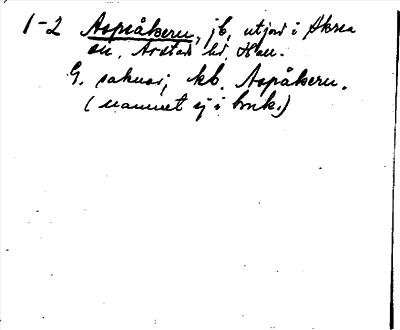 1-2 Aspåkern, jb, utjord i Skrea
sn. Årstad hd. Hall.
G. saknas; kb. Aspåkern.
(namnet ej i bruk.)